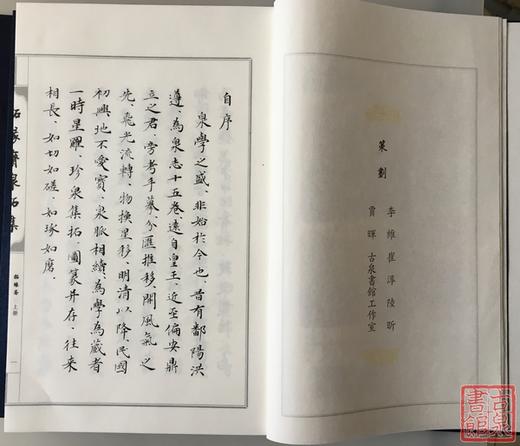 策劃
李維 崔淳 陸昕
賈暉 古泉書館工作室
自序
泉學之盛、非始於今也、昔有鄱陽洪
遵、為泉志十五卷遠自皇王、近至偏安鼎
立之君、旁考手摹、分匯推移、開風氣之
先、飛光流轉、物換星移、明清以降、民國
初興地不愛寶、泉脈相續為學為藏者
一時星曜、珍泉集拓、圖篆并存、往來
相長、如切如磋、如琢如磨、
拓緣齋泉拓集
拓緣齋 上冊
一
古泉
書館